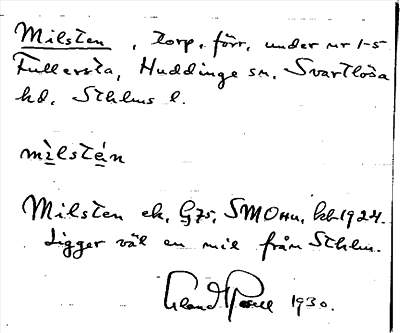 Milsten, torp, förr, under nr 1-5
Fullersta, Huddinge sn, Svartlösa
hd, Sthlms l.
mìlstén
Milsten ek. G75, SMOnu, kbl 1924.
Ligger väl en mil från Sthlm.
1930.